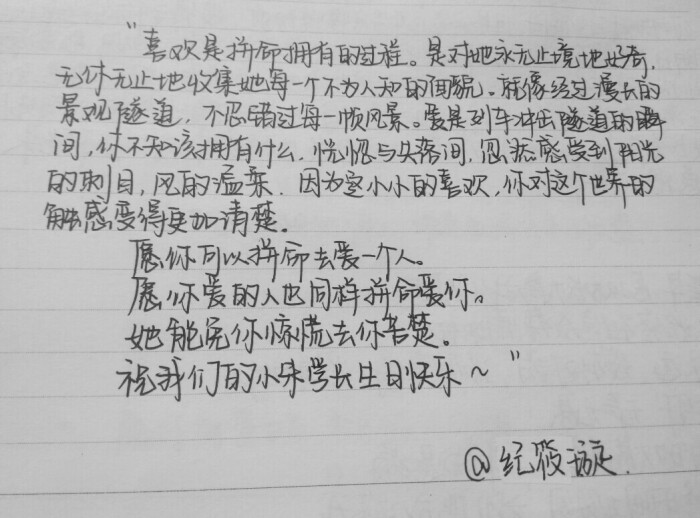 “喜欢是拼命拥有的过程。是对她永无止境地好奇,
无休无止地收集她每一个不为人知的面貌。就像经过漫长的
景观隧道,不忍错过每一帧风景。爱是列车冲出隧道的瞬
间,你不知该拥有什么,恍惚与失落间,忽然感受到阳光
的刺目,风的温柔.因为这小小的喜欢,你对这个世界的
触感变得更加清楚。
愿你可以拼命去爱一个人。
愿你爱的人也同样拼命爱你。
她能免你惊慌去你苦楚。
祝我们的小朱学长生日快乐~”
@纪筱璇.